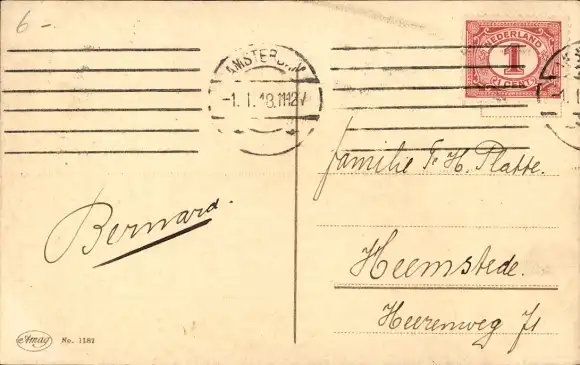 6-
NEDERLAND
1
CENT
AMSTERDAM
-1. I. 18.11-12V
Familie F. H. Platte.
Bernard.
Heemstede.
Heerenweg 71
Amag No. 1181